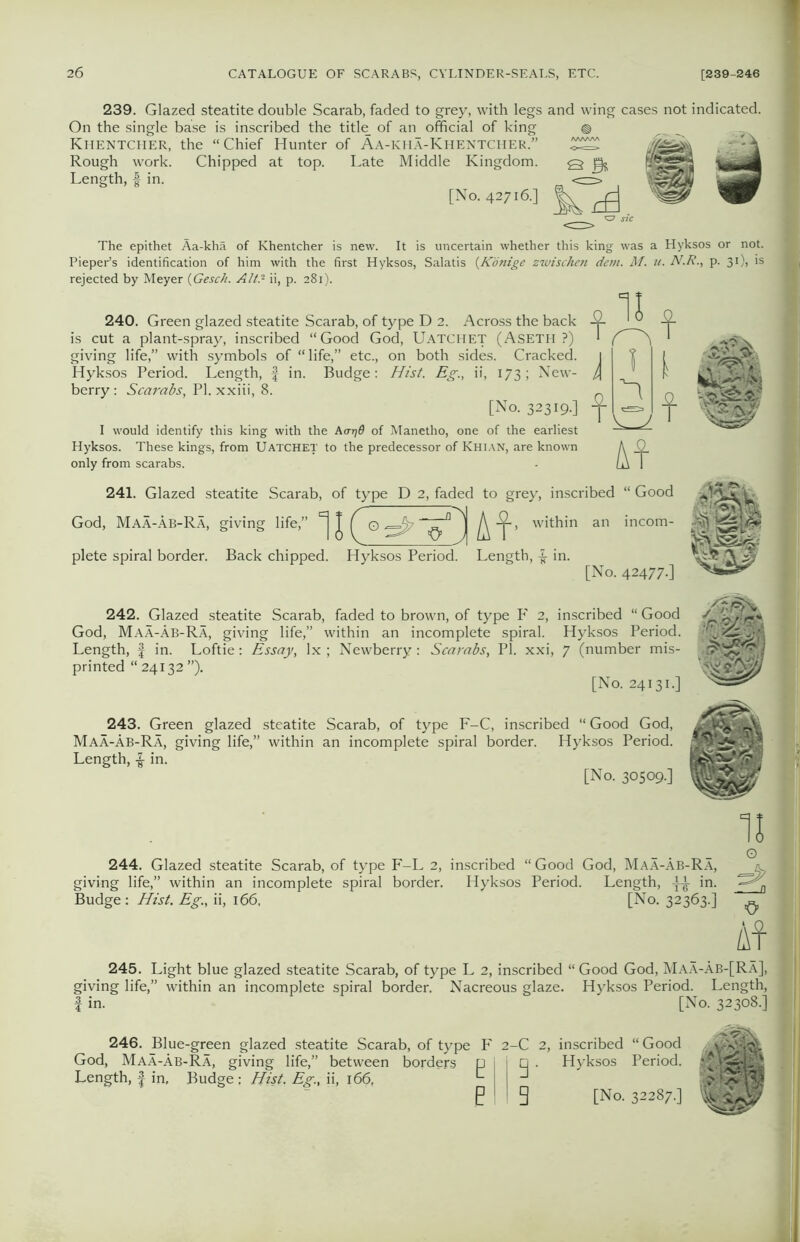 26 CATALOGUE OF SCARABS, CYLINDER-SEALS, ETC. [239-246
239. Glazed steatite double Scarab, faded to grey, with legs and wing cases not indicated.
On the single base is inscribed the title of an official of king
KHENTCHER, the “Chief Hunter of ĀA-KHĀ-KHENTCHER.”
Rough work. Chipped at top. Late Middle Kingdom.
Length, ⅝ in.
[No. 42716.]
sic
The epithet Āa-khā of Khentcher is new. It is uncertain whether this king was a Hyksos or not.
Pieper’s identification of him with the first Hyksos, Salatis (Könige zwischen dem. M. u. N.R., p. 31), is
rejected by Meyer (Gesch. Alt.² ii, p. 281).
240. Green glazed steatite Scarab, of type D 2. Across the back
is cut a plant-spray, inscribed “Good God, UATCHET (ASETH ?)
giving life,” with symbols of “life,” etc., on both sides. Cracked.
Hyksos Period. Length, ¾ in. Budge: Hist. Eg., ii, 173; New-
berry: Scarabs, Pl. xxiii, 8.
[No. 32319.]
I would identify this king with the Ασηθ of Manetho, one of the earliest
Hyksos. These kings, from UATCHET to the predecessor of KHIAN, are known
only from scarabs.
241. Glazed steatite Scarab, of type D 2, faded to grey, inscribed “Good
God, MAĀ-ÀB-RĀ, giving life,” within an incom-
plete spiral border. Back chipped. Hyksos Period. Length, ⅞ in.
[No. 42477.]
242. Glazed steatite Scarab, faded to brown, of type F 2, inscribed “Good
God, MAĀ-ÀB-RĀ, giving life,” within an incomplete spiral. Hyksos Period.
Length, ¾ in. Loftie: Essay, lx; Newberry: Scarabs, Pl. xxi, 7 (number mis-
printed “24132”).
[No. 24131.]
243. Green glazed steatite Scarab, of type F–C, inscribed “Good God,
MAĀ-ÀB-RĀ, giving life,” within an incomplete spiral border. Hyksos Period.
Length, ⅞ in.
[No. 30509.]
244. Glazed steatite Scarab, of type F–L 2, inscribed “Good God, MAĀ-ÀB-RĀ,
giving life,” within an incomplete spiral border. Hyksos Period. Length, 11/16 in.
Budge: Hist. Eg., ii, 166. [No. 32363.]
245. Light blue glazed steatite Scarab, of type L 2, inscribed “Good God, MAĀ-ÀB-[RĀ],
giving life,” within an incomplete spiral border. Nacreous glaze. Hyksos Period. Length,
¾ in. [No. 32308.]
246. Blue-green glazed steatite Scarab, of type F 2–C 2, inscribed “Good
God, MAĀ-ÀB-RĀ, giving life,” between borders . Hyksos Period.
Length, ¾ in. Budge: Hist. Eg., ii, 166.
[No. 32287.]